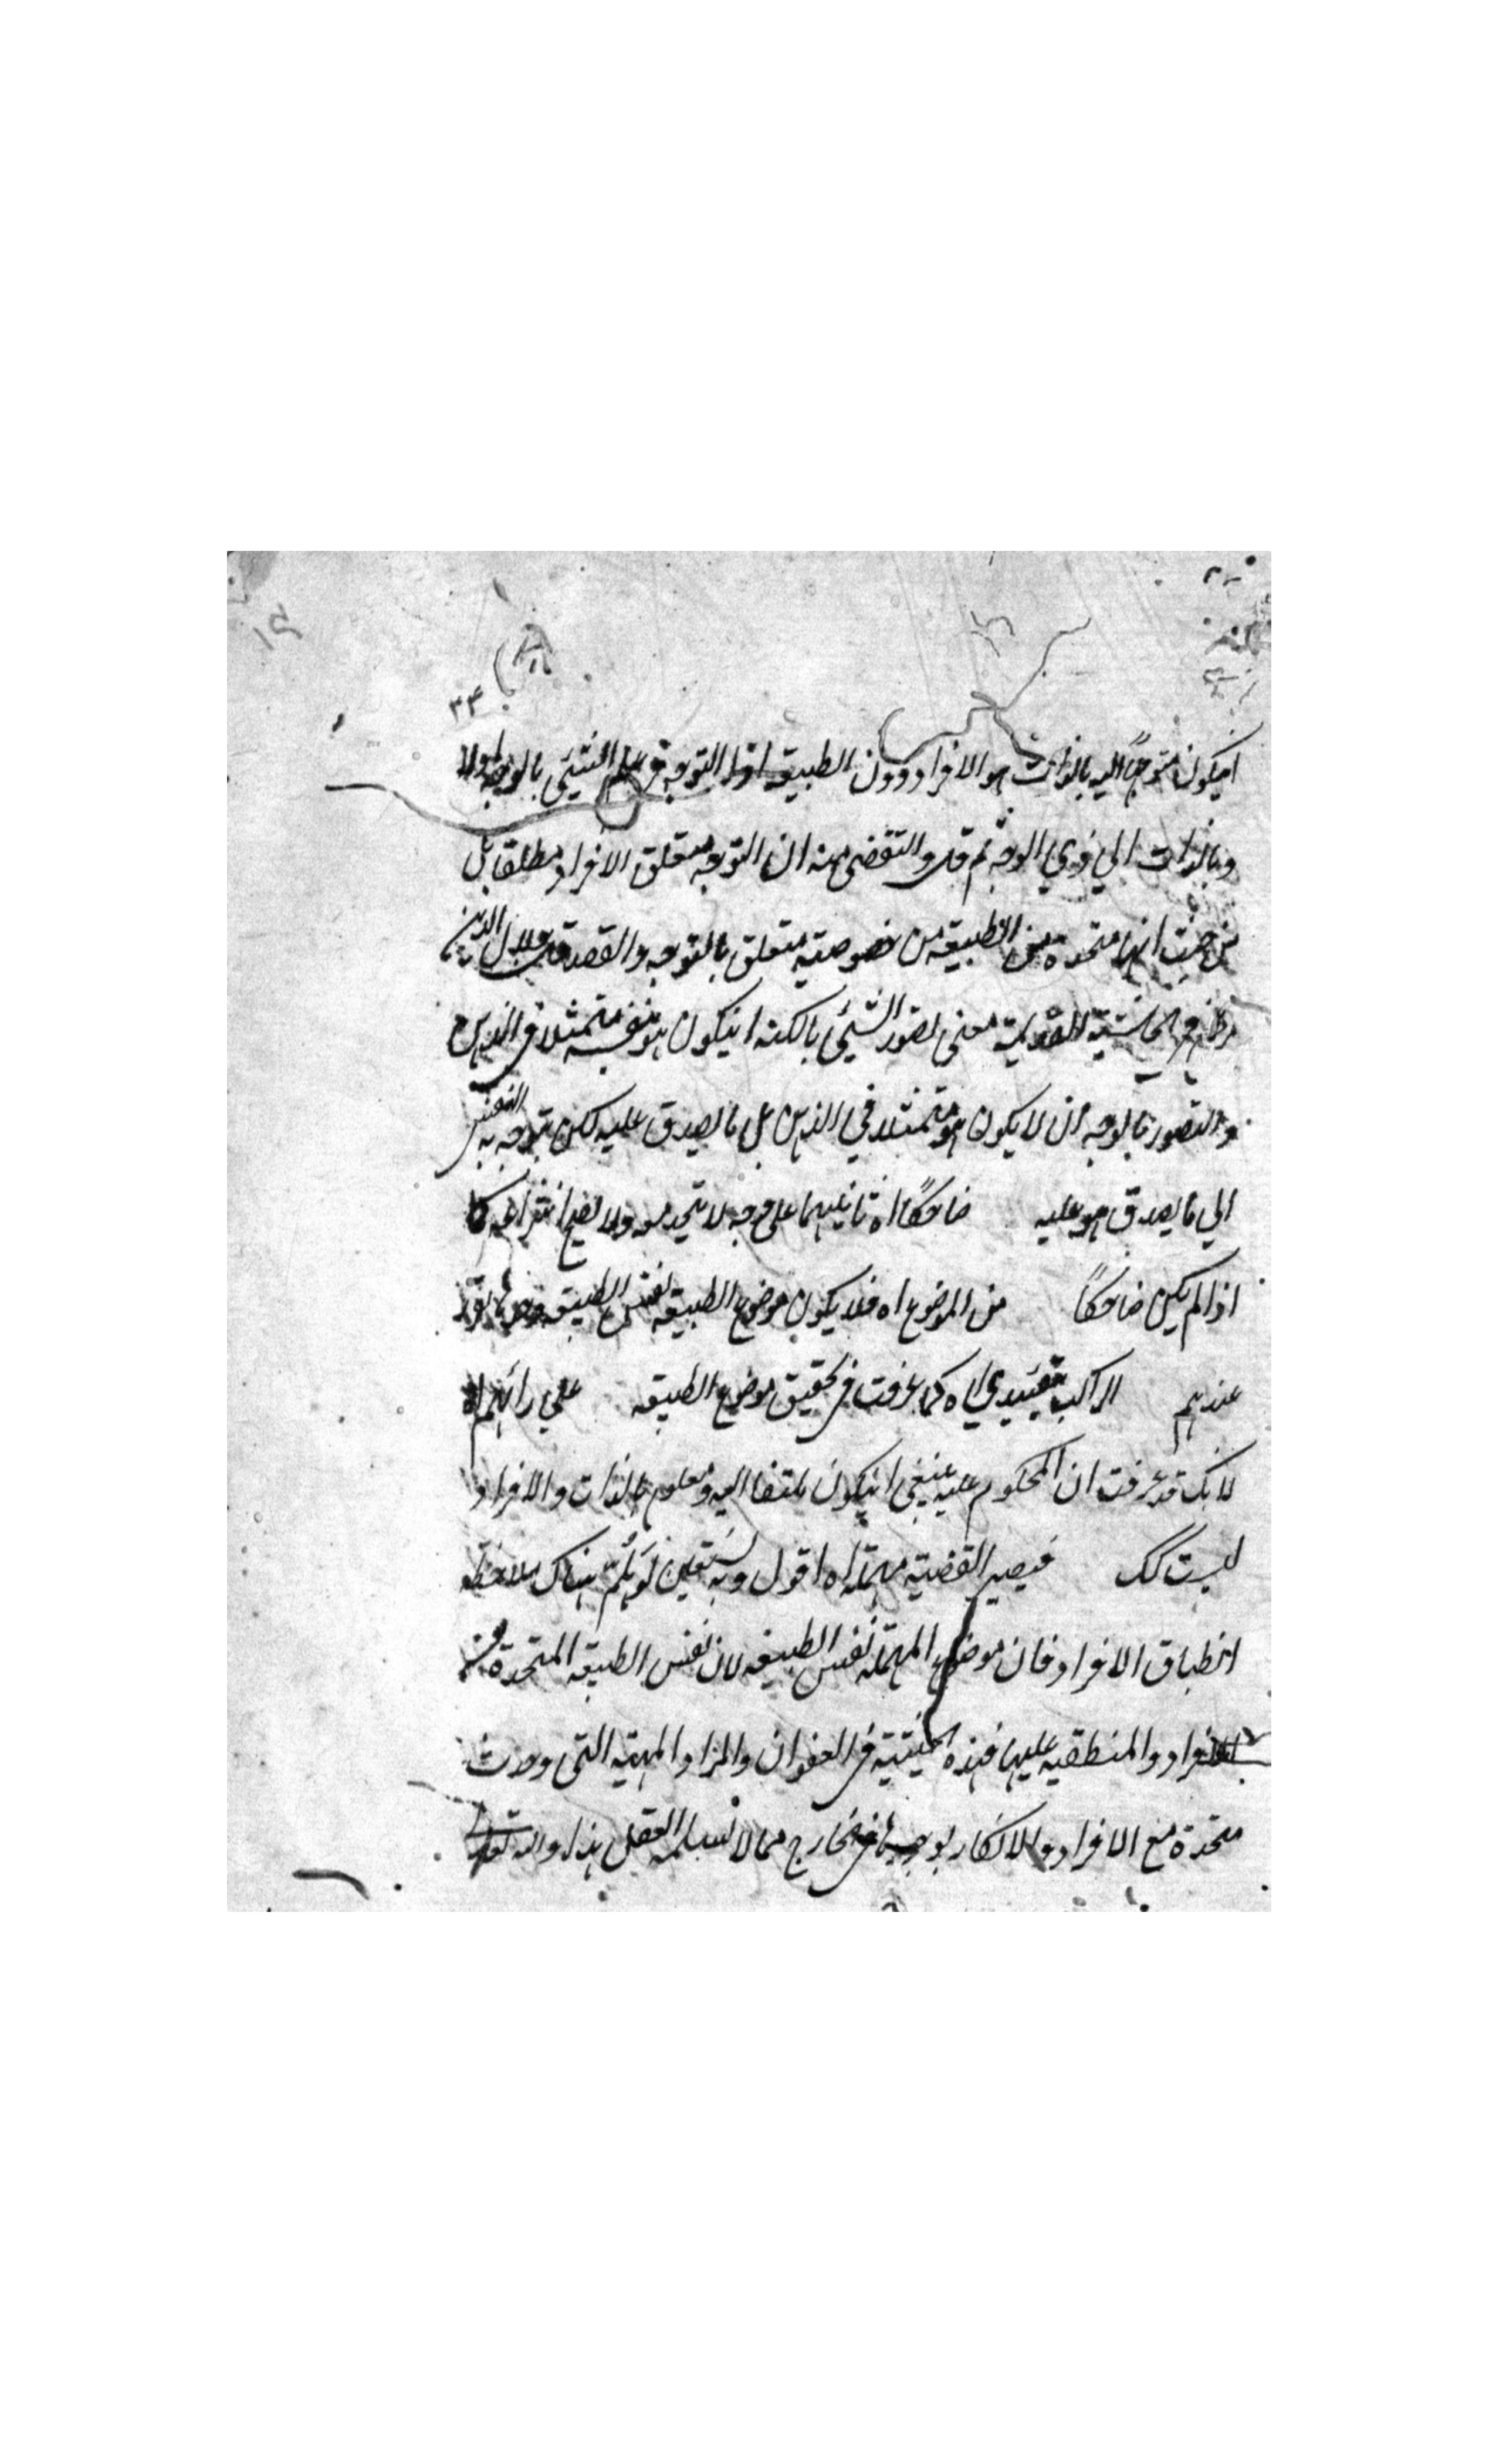 ٣٣
ايكون متوجها اليه بالذات هو الافراد دون الطبيعة اذا التوجه في علم الشيئ بالوجه اولا
وبالذات الي ذي الوجه ثم قال والتقضى منه ان التوجه متعلق الافراد مطلقا بل
من حيث انها متحدة مع الطبيعه من خصوصيته متعلق بالتوجه والقصد قال جلال الدين
في الحاشية القديمة معنى تصور الشيئ بالكنه ان يكون هو بنفسه متمثلا في الذهن
والتصور بالوجه ان لا يكون هو متمثلا في الذهن بل ما يصدق عليه لكن يتوجه به النفس
الي ما يصدق هو عليه ضاحكا اه تانيهما على وجه لا يتحد معه ولا يصح انتزاعه كما
اذا لم يكن ضاحكا من الموضوع اه فلا يكون موضوع الطبيعه نفس الطبيعه
عندهم المركب تقييدي اه كما عرفت في تحقيق موضوع الطبيعه علي رائهم اه
لانك قد عرفت ان المحكوم عليه ينبغي ان يكون ملتفتا اليه ومعلوم بالذات والافراد
ليست كك فيصير القضية مهملة اه اقول وبه نستعين لو تم هناك ملاحظة
انطباق الافراد فان موضوع المهملة نفس الطبيعه لان نفس الطبيعه المتحدة مع
الافراد والمنطبقه عليها فهذه الحيثية في العنوان والمراد المهية التي وجدت
متحدة مع الافراد والانكار بوجودها في الخارج مما لا نسلمه العقل هذا والله تعالى